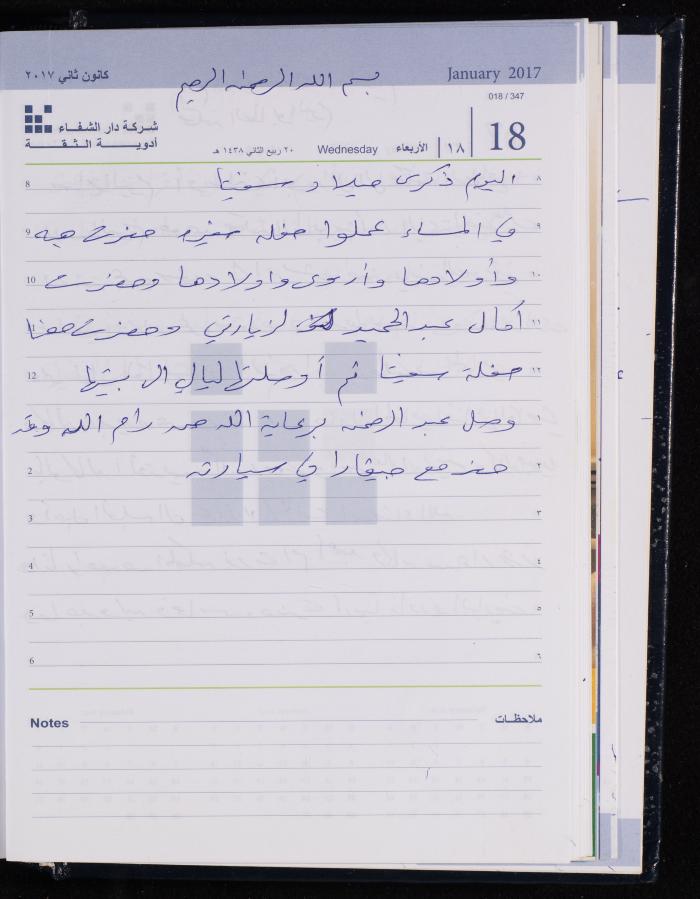 كانون ثاني ٢٠١٧
بسم الله الرحمن الرحيم
January 2017
018 / 347
شركة دار الشفاء
أدوية الثقة
٢٠ ربيع الثاني ١٤٣٨ هـ Wednesday الأربعاء ١٨ 18
8 اليوم ذكرى ميلاد سفيتا ٨
9 في المساء عملوا حفلة صغيرة حضرت هبه ٩
10 وأولادها وأروى واولادها وحضرت ١٠
11 آمال عبد الحميد لزيارتي وحضرت معنا ١١
12 حفلة سفيتا ثم أوصلتها ليالي الى بيتها ١٢
وصل عبد الرحمن برعاية الله من رام الله وقد ١
2 حضر مع في سيارته ٢
3 ٣
4 ٤
5 ٥
6 ٦
Notes ملاحظات